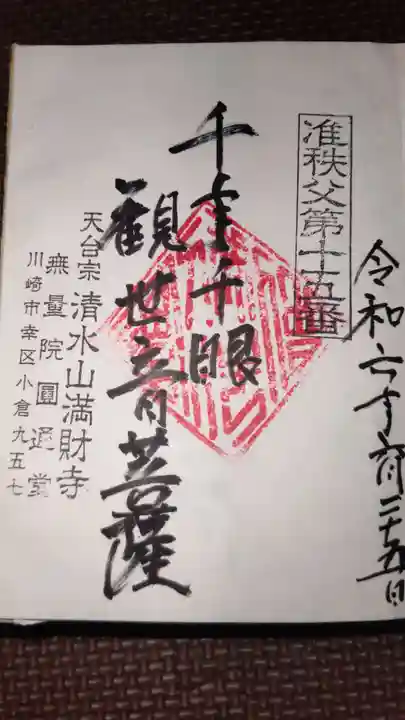 令和六年六月二十五日
准秩父第十五番
千手千眼
觀世音菩薩
天台宗 清水山満財寺
無量院圓通堂
川崎市幸区小倉九五七